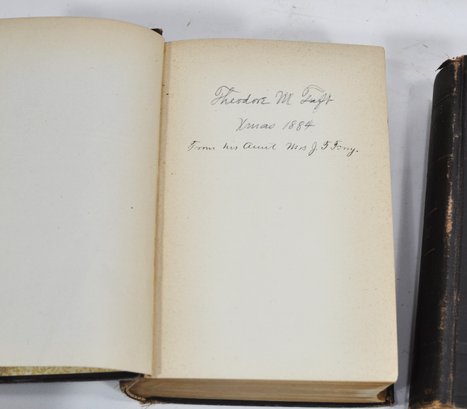 Theodore M Taft
Xmas 1884
From his Aunt Mrs J. F.